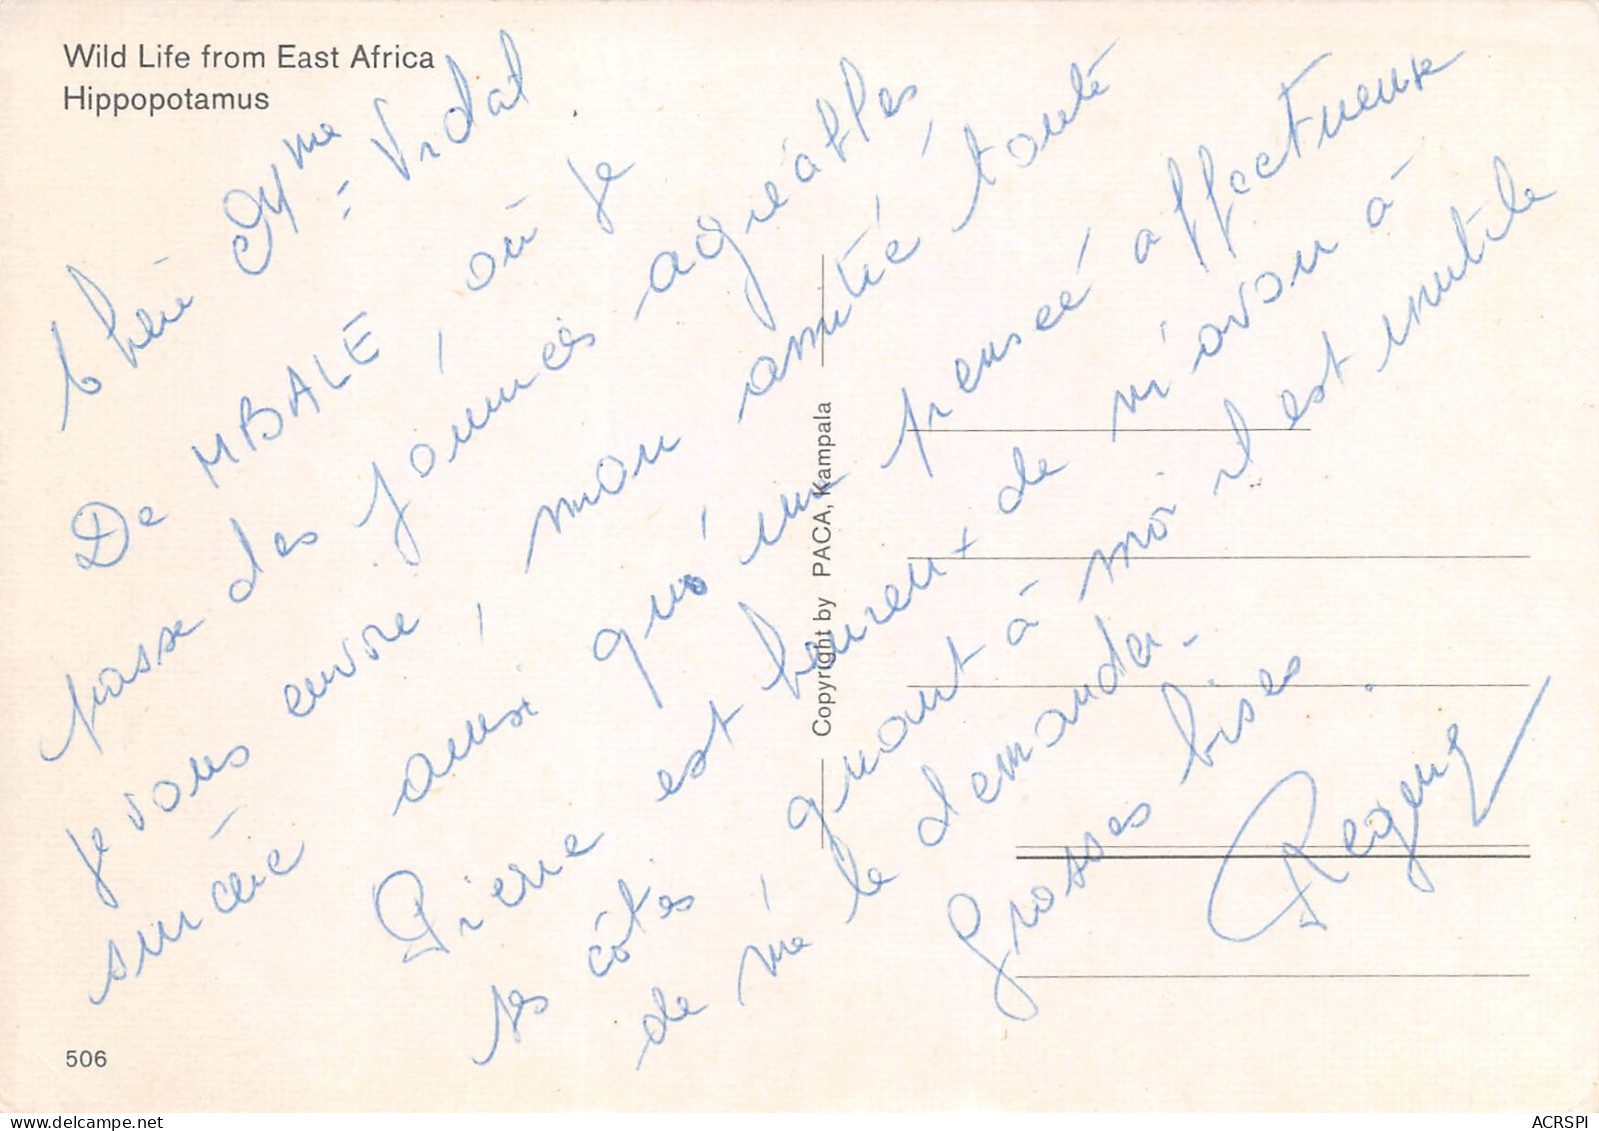 Wild Life from East Africa
Hippopotamus
Chère Mme Vidal
De MBALE, où je
passe des journées agréables
je vous envoie, mon amitié toute
sincère ainsi qu'une pensée affectueuse
Pierre est heureux de m'avoir à
ses côtés, quant à moi il est inutile
de me le demander.
Grosses bises.
Copyright by PACA, Kampala
506
ACRSPI